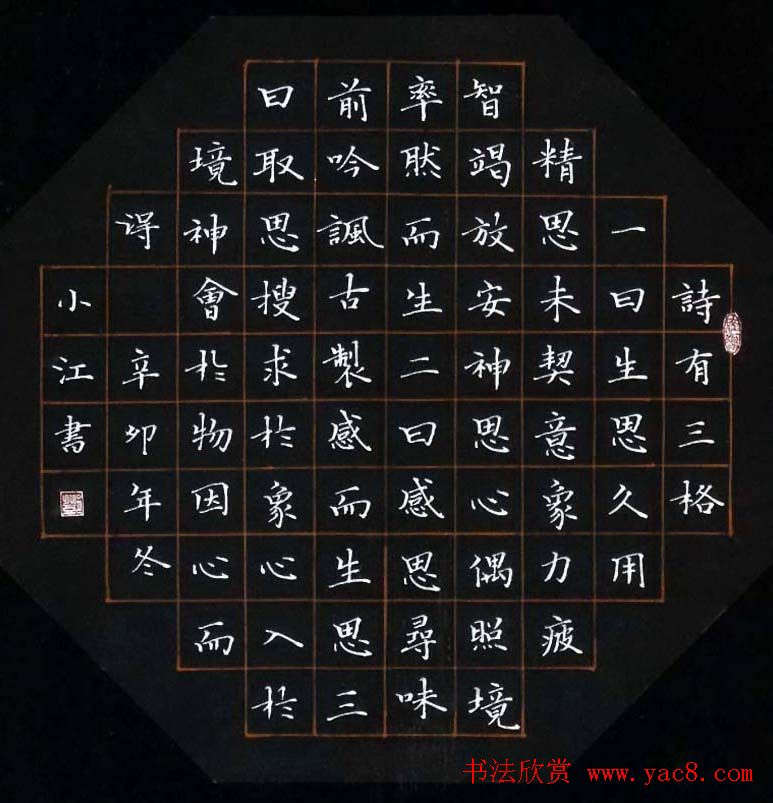 詩有三格
一曰生思久用
精思未契意象力疲
智竭放安神思心偶照境
率然而生二曰感思尋味
前吟諷古製感而生思三
曰取思搜求於象心入於
境神會於物因心而
得 辛卯年冬
小江書
书法欣赏 www.yac8.com